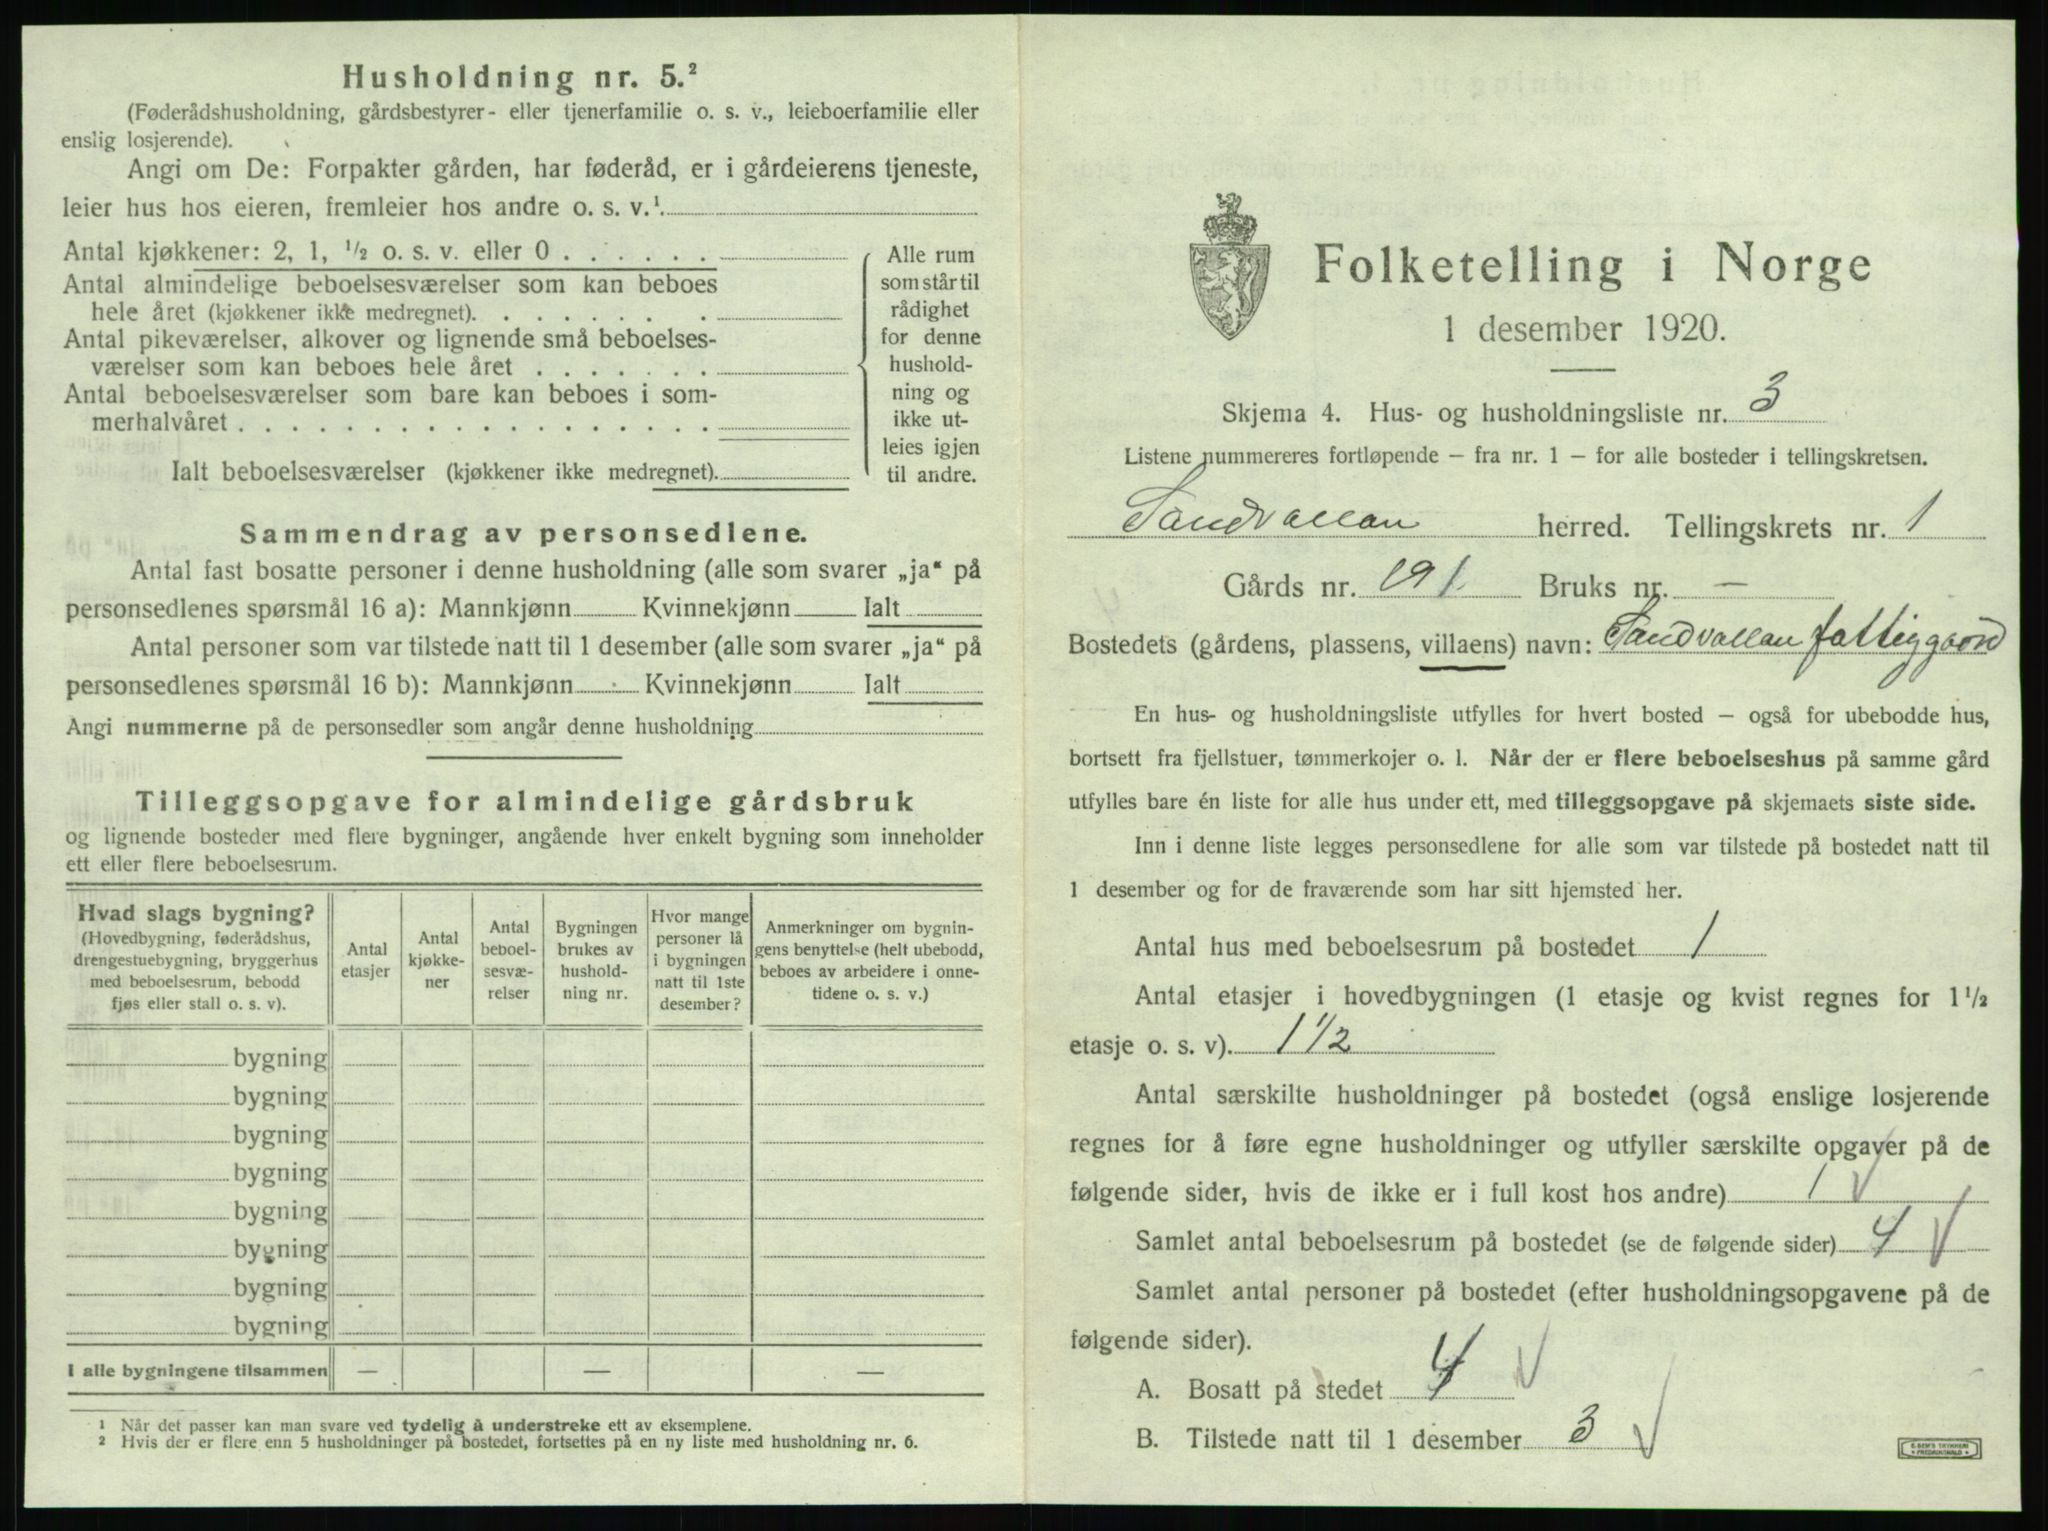 Husholdning nr. 5.²
(Føderådshusholdning, gårdsbestyrer- eller tjenerfamilie o. s. v., leieboerfamilie eller
enslig losjerende).
Angi om De: Forpakter gården, har føderåd, er i gårdeierens tjeneste,
leier hus hos eieren, fremleier hos andre o. s. v.¹
Antal kjøkkener: 2, 1, ½ o. s. v. eller 0 . . . . . .
Antal almindelige beboelsesværelser som kan beboes
hele året (kjøkkener ikke medregnet). . . . . . . .
Antal pikeværelser, alkover og lignende små beboelses-
værelser som kan beboes hele året . . . . . . .
Antal beboelsesværelser som bare kan beboes i som-
merhalvåret . . . . . . . . . . . . . . . . . .
Ialt beboelsesværelser (kjøkkener ikke medregnet).
Alle rum
som står til
rådighet
for denne
hushold-
ning og
ikke ut-
leies igjen
til andre.
Sammendrag av personsedlene.
Antal fast bosatte personer i denne husholdning (alle som svarer „ja“ på
personsedlenes spørsmål 16 a): Mannkjønn Kvinnekjønn Ialt
Antal personer som var tilstede natt til 1 desember (alle som svarer „ja“ på
personsedlenes spørsmål 16 b): Mannkjønn Kvinnekjønn Ialt
Angi nummerne på de personsedler som angår denne husholdning
Tilleggsopgave for almindelige gårdsbruk
og lignende bosteder med flere bygninger, angående hver enkelt bygning som inneholder
ett eller flere beboelsesrum.
Hvad slags bygning?
(Hovedbygning, føderådshus,
drengestuebygning, bryggerhus
med beboelsesrum, bebodd
fjøs eller stall o. s. v).
Antal
etasjer
Antal
kjøkke-
ner
Antal
beboel-
sesvæ-
relser
Bygningen
brukes av
hushold-
ning nr.
Hvor mange
personer lå
i bygningen
natt til 1ste
desember?
Anmerkninger om bygnin-
gens benyttelse (helt ubebodd,
beboes av arbeidere i onne-
tidene o. s. v.)
bygning
bygning
bygning
bygning
bygning
bygning
bygning
bygning
I alle bygningene tilsammen — — —
¹ Når det passer kan man svare ved tydelig å understreke ett av eksemplene.
² Hvis der er flere enn 5 husholdninger på bostedet, fortsettes på en ny liste med husholdning nr. 6.
Folketelling i Norge
1 desember 1920.
Skjema 4. Hus- og husholdningsliste nr. 3
Listene nummereres fortløpende – fra nr. 1 – for alle bosteder i tellingskretsen.
Sandvollan herred. Tellingskrets nr. 1
Gårds nr. 191. Bruks nr. —
Bostedets (gårdens, plassens, villaens) navn: Sandvollan fattiggaard
En hus- og husholdningsliste utfylles for hvert bosted – også for ubebodde hus,
bortsett fra fjellstuer, tømmerkojer o. l. Når der er flere beboelseshus på samme gård
utfylles bare én liste for alle hus under ett, med tilleggsopgave på skjemaets siste side.
Inn i denne liste legges personsedlene for alle som var tilstede på bostedet natt til
1 desember og for de fraværende som har sitt hjemsted her.
Antal hus med beboelsesrum på bostedet 1
Antal etasjer i hovedbygningen (1 etasje og kvist regnes for 1½
etasje o. s. v). 1 1/2
Antal særskilte husholdninger på bostedet (også enslige losjerende
regnes for å føre egne husholdninger og utfyller særskilte opgaver på de
følgende sider, hvis de ikke er i full kost hos andre) 1 √
Samlet antal beboelsesrum på bostedet (se de følgende sider) 4 √
Samlet antal personer på bostedet (efter husholdningsopgavene på de
følgende sider).
A. Bosatt på stedet 4 √
B. Tilstede natt til 1 desember 3 √